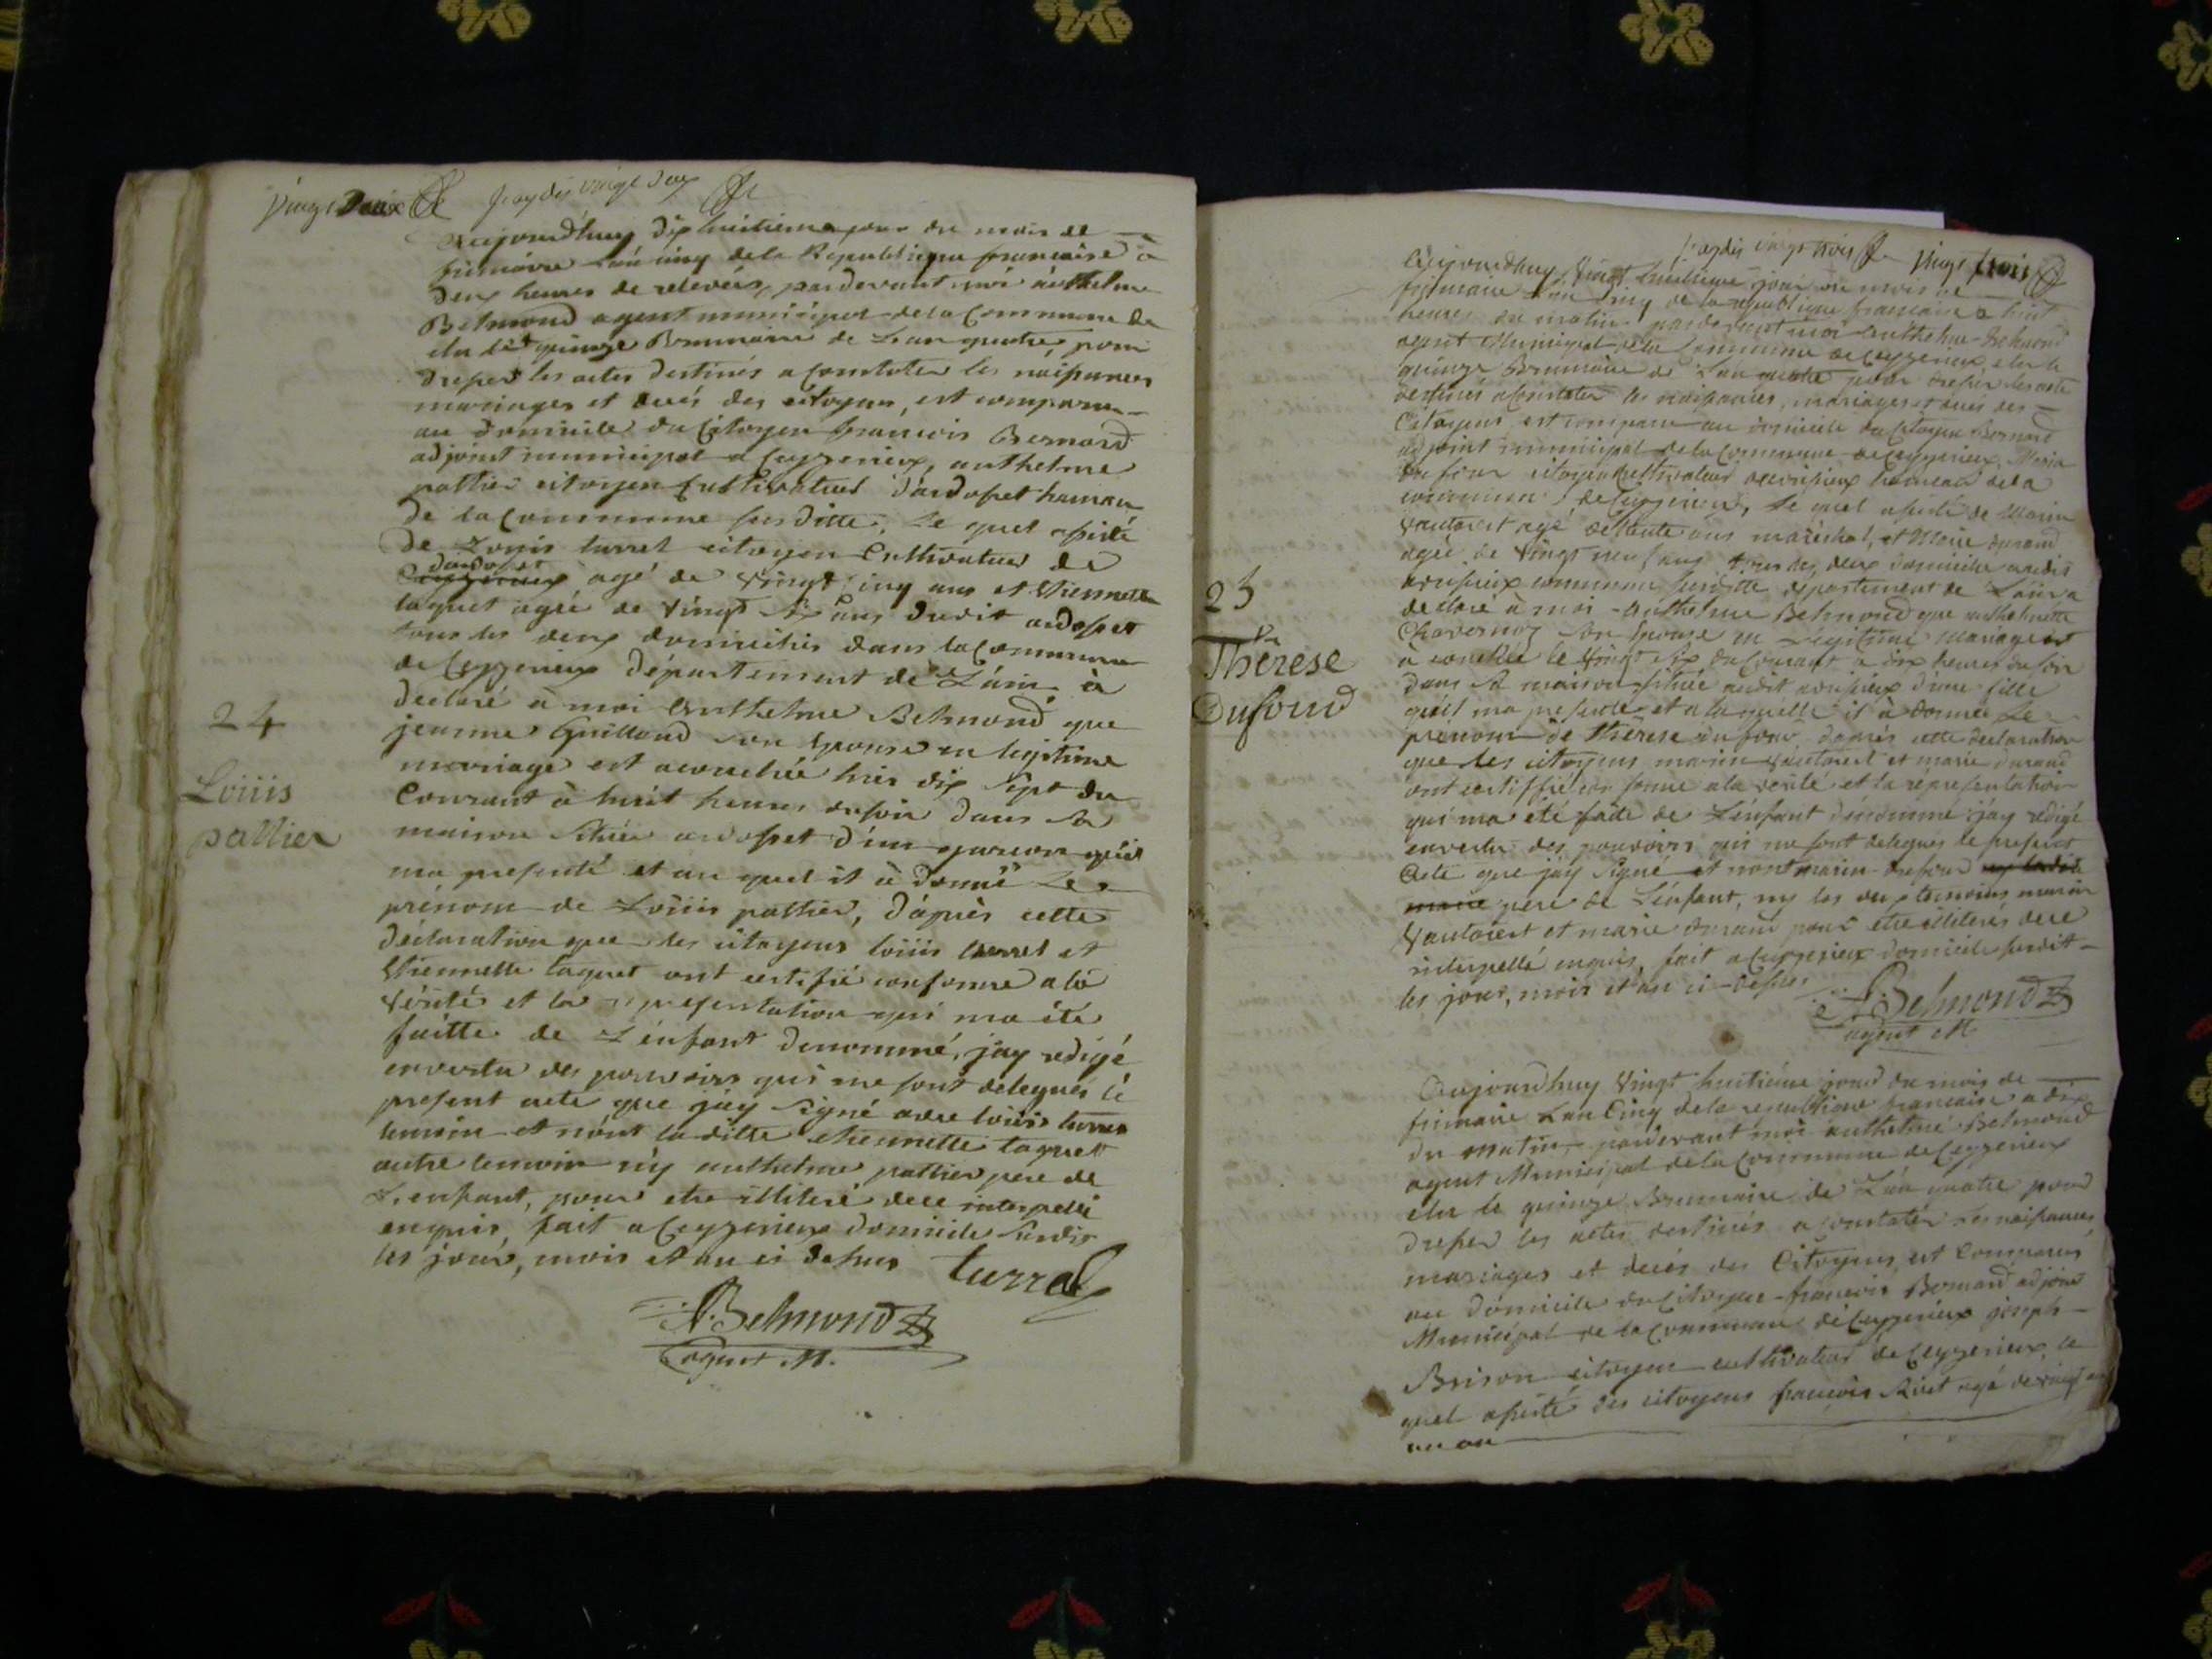 vingt Deux
feuillet vingt deux
24
Loüis
pattier
Aujourd'huy dix huitieme jour du mois de
frimaire l'an cinq de la Republique francaise à
deux heures de relevéés, pardevant moi anthelme
Belmond agent municipal de la Commune de
elu le quinze Brumaire de L'an quatre, pour
dresser les actes destinés a constater les naissances
mariages et decés des citoyens, est comparu
au domicile du Citoyen francois Bernard
adjoint municipal a Ceyzerieux, anthelme
pattier citoyen Cultivateur d'ardosset hamau
de la Commune susditte, Le quel assisté
de Louis turrel citoyen Cultivateur de
dardosset
Ceyzerieux agé de vingt cinq ans et Etiennette
taquet agée de vingt six ans dudit ardosset
tous les deux domiciliés dans la Commune
de Ceyzerieux département de L'ain à
declaré à moi Anthelme Belmond que
jeanne Guilland son Epouse en legitime
mariage est acouchée hier dix sept du
Courant à huit heures du soir dans sa
maison située ardosset d'un garcon qu'il
ma presenté et au quel il à donné Le
prénom de Loüis pattier, d'après cette
déclaration que les citoyens loüis turrel et
Etiennette taquet ont certifié conforme a la
vérité et la representation qui ma été
faitte de L'enfant denommé, j'ay redigé
en vertu des pouvoirs qui me sont delegués le
present acte que j'ay signé avec loüis turrel
temoin et n'ont la ditte etiennette taquet
autre temoin n'y anthelme pattier pere de
L'enfant, pour etre illiteré dece interpellé
enquis, fait a Ceyzerieux domicile susdit
les jour, mois et an ci dessus
turrel
A. Belmond
agent M.
feuillet vingt trois
vingt trois
23
Thérese
Dufour
Aujourdhuy vingt huitieme jour du mois de
frimaire L'an cinq de la republique francaise a huit
heures du matin pardevant moi anthelme Belmond
agent Municipal de la Commune de Ceyzerieux elu le
quinze Brumaire de L'an quatre pour dresser les acte
destinés a constater les naissances, mariages et decés des
Citoyens est comparu au domicile du Citoyen Bernard
adjoint municipal de la Commune de Ceyzerieux, Marin
Dufour citoyen Cultivateur hameau de la
commune de Ceyzerieux, Le quel assisté de Marin
Vautaret agé de trente ans maréchal, et Marie durand
agée de vingt neuf ans tous les deux domicilié audit
commune susditte département de L'ain a
declaré à moi Anthelme Belmond que anthelmette
Chavernoz son Epouse en Legitime mariage est
à couchée le vingt six du Courant a dix heures du soir
dans sa maison située audit d'une fille
qu'il ma presenté et a la quelle il à donné Le
prénom de Thérese dufour daprés cette declaration
que les citoyens marin Vautaret et marie durand
ont certiffié conforme a la vérité et la répresentation
qui ma été faite de L'enfant dénommé j'ay redigé
en vertu des pouvoirs qui me sont delegués le present
acte que j'ay signé et n'ont marin dufour
marie pere de L'enfant, ny les deux temoins marin
Vautaret et marie durand pour etre illiterés dece
interpellé enquis, fait a Ceyzerieux domicile susdit
les jour, mois et an ci-dessus
A. Belmond
agent M
Aujourdhuy vingt huitiéme jour du mois de
frimaire L'an Cinq de la republique francaise a dix
du matin, pardevant moi anthelme Belmond
agent Municipal de la Commune de Ceyzerieux
elu le quinze Brumaire de L'an quatre pour
dresser les actes destinés a constater Les naissances
mariages et decés des Citoyens est comparu
au domicile du Citoyen francois Bernard adjoint
Municipal de la Commune de Ceyzerieux joseph
Brison citoyen cultivateur de Ceyzerieux, le
quel assisté des citoyens francois agé de vingt
un an